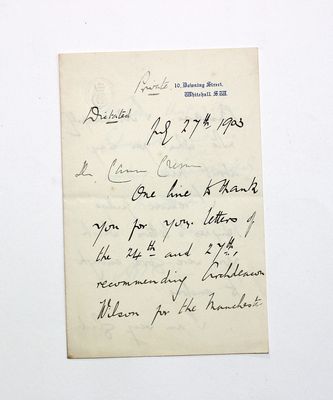 Private.
10, Downing Street,
Whitehall, S.W.
Dictated
July 27th 1903
One line to thank
you for your letters of
the 24th and 27th,
recommending Archdeacon
Wilson for the Manchester